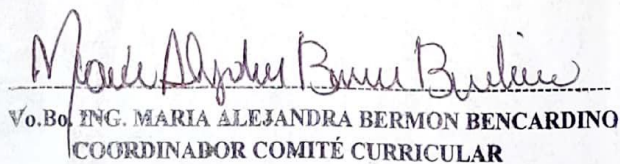 Vo.Bo. ING. MARIA ALEJANDRA BERMON BENCARDINO
COORDINADOR COMITÉ CURRICULAR